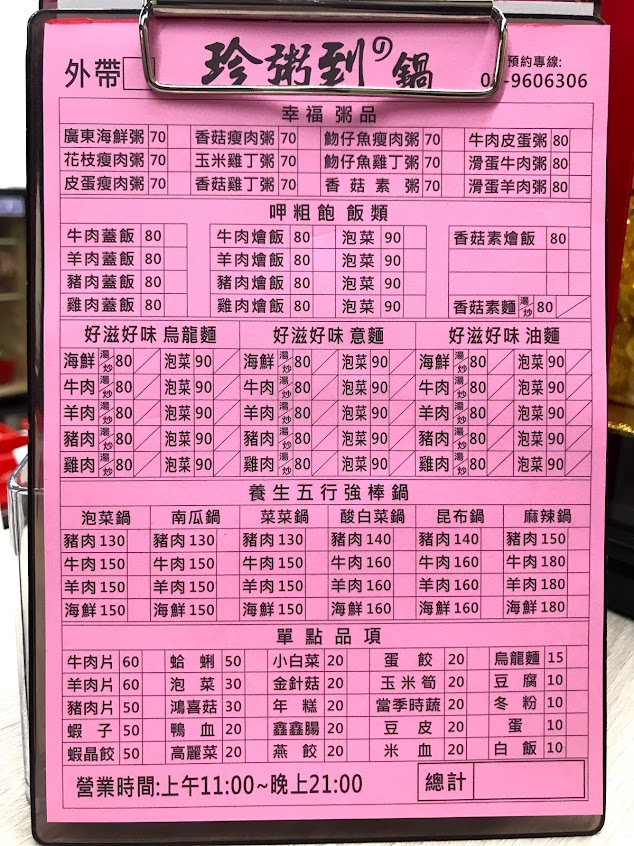 外帶
珍粥到の鍋
預約專線:
-9606306
幸福粥品
廣東海鮮粥 70 香菇瘦肉粥 70 魩仔魚瘦肉粥 70 牛肉皮蛋粥 80
花枝瘦肉粥 70 玉米雞丁粥 70 魩仔魚雞丁粥 70 滑蛋牛肉粥 80
皮蛋瘦肉粥 70 香菇雞丁粥 70 香菇素粥 70 滑蛋羊肉粥 80
呷粗飽 飯類
牛肉蓋飯 80 牛肉燴飯 80 泡菜 90 香菇素燴飯 80
羊肉蓋飯 80 羊肉燴飯 80 泡菜 90
豬肉蓋飯 80 豬肉燴飯 80 泡菜 90
雞肉蓋飯 80 雞肉燴飯 80 泡菜 90 香菇素麵 湯/炒 80
好滋好味 烏龍麵 好滋好味 意麵 好滋好味 油麵
海鮮 湯/炒 80 泡菜 90 海鮮 湯/炒 80 泡菜 90 海鮮 湯/炒 80 泡菜 90
牛肉 湯/炒 80 泡菜 90 牛肉 湯/炒 80 泡菜 90 牛肉 湯/炒 80 泡菜 90
羊肉 湯/炒 80 泡菜 90 羊肉 湯/炒 80 泡菜 90 羊肉 湯/炒 80 泡菜 90
豬肉 湯/炒 80 泡菜 90 豬肉 湯/炒 80 泡菜 90 豬肉 湯/炒 80 泡菜 90
雞肉 湯/炒 80 泡菜 90 雞肉 湯/炒 80 泡菜 90 雞肉 湯/炒 80 泡菜 90
養生五行強棒鍋
泡菜鍋 南瓜鍋 菜菜鍋 酸白菜鍋 昆布鍋 麻辣鍋
豬肉 130 豬肉 130 豬肉 130 豬肉 140 豬肉 140 豬肉 150
牛肉 150 牛肉 150 牛肉 150 牛肉 160 牛肉 160 牛肉 180
羊肉 150 羊肉 150 羊肉 150 羊肉 160 羊肉 160 羊肉 180
海鮮 150 海鮮 150 海鮮 150 海鮮 160 海鮮 160 海鮮 180
單點品項
牛肉片 60 蛤蜊 50 小白菜 20 蛋餃 20 烏龍麵 15
羊肉片 60 泡菜 30 金針菇 20 玉米筍 20 豆腐 10
豬肉片 50 鴻喜菇 30 年糕 20 當季時蔬 20 冬粉 10
蝦子 50 鴨血 20 鑫鑫腸 20 豆皮 20 蛋 10
蝦晶餃 50 高麗菜 20 燕餃 20 米血 20 白飯 10
營業時間:上午11:00~晚上21:00
總計